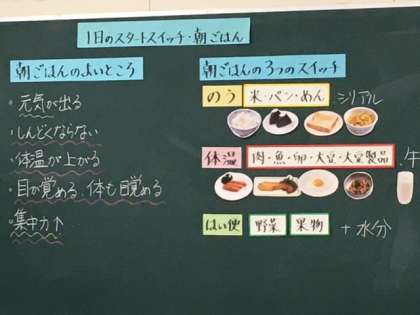 1日のスタートスイッチ・朝ごはん
朝ごはんのよいところ
・元気が出る
・しんどくならない
・体温が上がる
・目が覚める、体も目覚める
・集中力↑
朝ごはんの3つのスイッチ
のう 米・パン・めん シリアル
体温 肉・魚・卵・大豆・大豆製品 ・牛
はい便 野菜 果物 + 水分